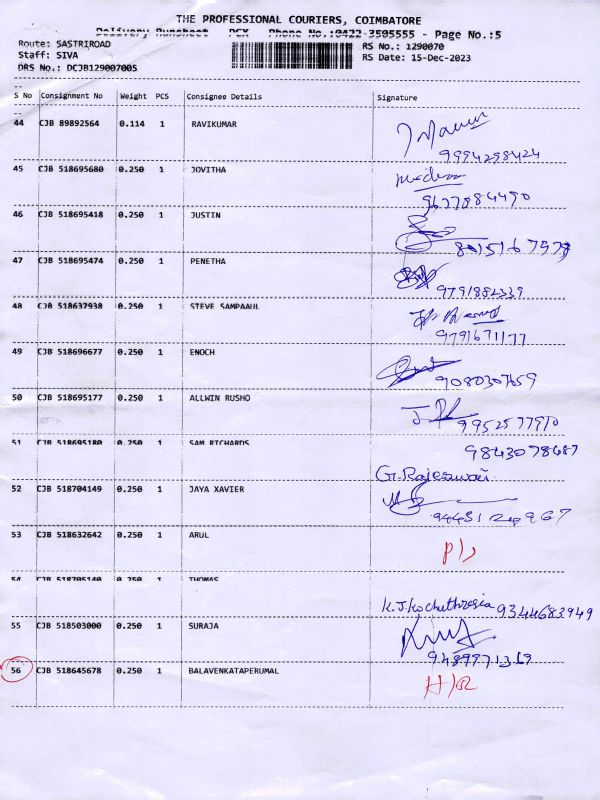 THE PROFESSIONAL COURIERS, COIMBATORE
Delivery Runsheet PCX Phone No.:0422-3505555 - Page No.:5
Route: SASTRIROAD RS No.: 1290070
Staff: SIVA RS Date: 15-Dec-2023
DRS No.: DCJB129007005
S No Consignment No Weight PCS Consignee Details Signature
44 CJB 89892564 0.114 1 RAVIKUMAR
9994298424
45 CJB 518695680 0.250 1 JOVITHA
9677884490
46 CJB 518695418 0.250 1 JUSTIN
47 CJB 518695474 0.250 1 PENETHA
9791882339
48 CJB 518637938 0.250 1 STEVE SAMPAAUL
9791671177
49 CJB 518696677 0.250 1 ENOCH
9080307659
50 CJB 518695177 0.250 1 ALLWIN RUSHO
9952577970
51 CJB 518695180 0.250 1 SAM RICHARDS 9843078687
G. Rajeswari
52 CJB 518704149 0.250 1 JAYA XAVIER
53 CJB 518632642 0.250 1 ARUL
P/S
54 CJB 518705140 0.250 1 THOMAS
K.J.Kochuthresia 9344683949
55 CJB 518503000 0.250 1 SURAJA
9489971369
56 CJB 518645678 0.250 1 BALAVENKATAPERUMAL
H/R